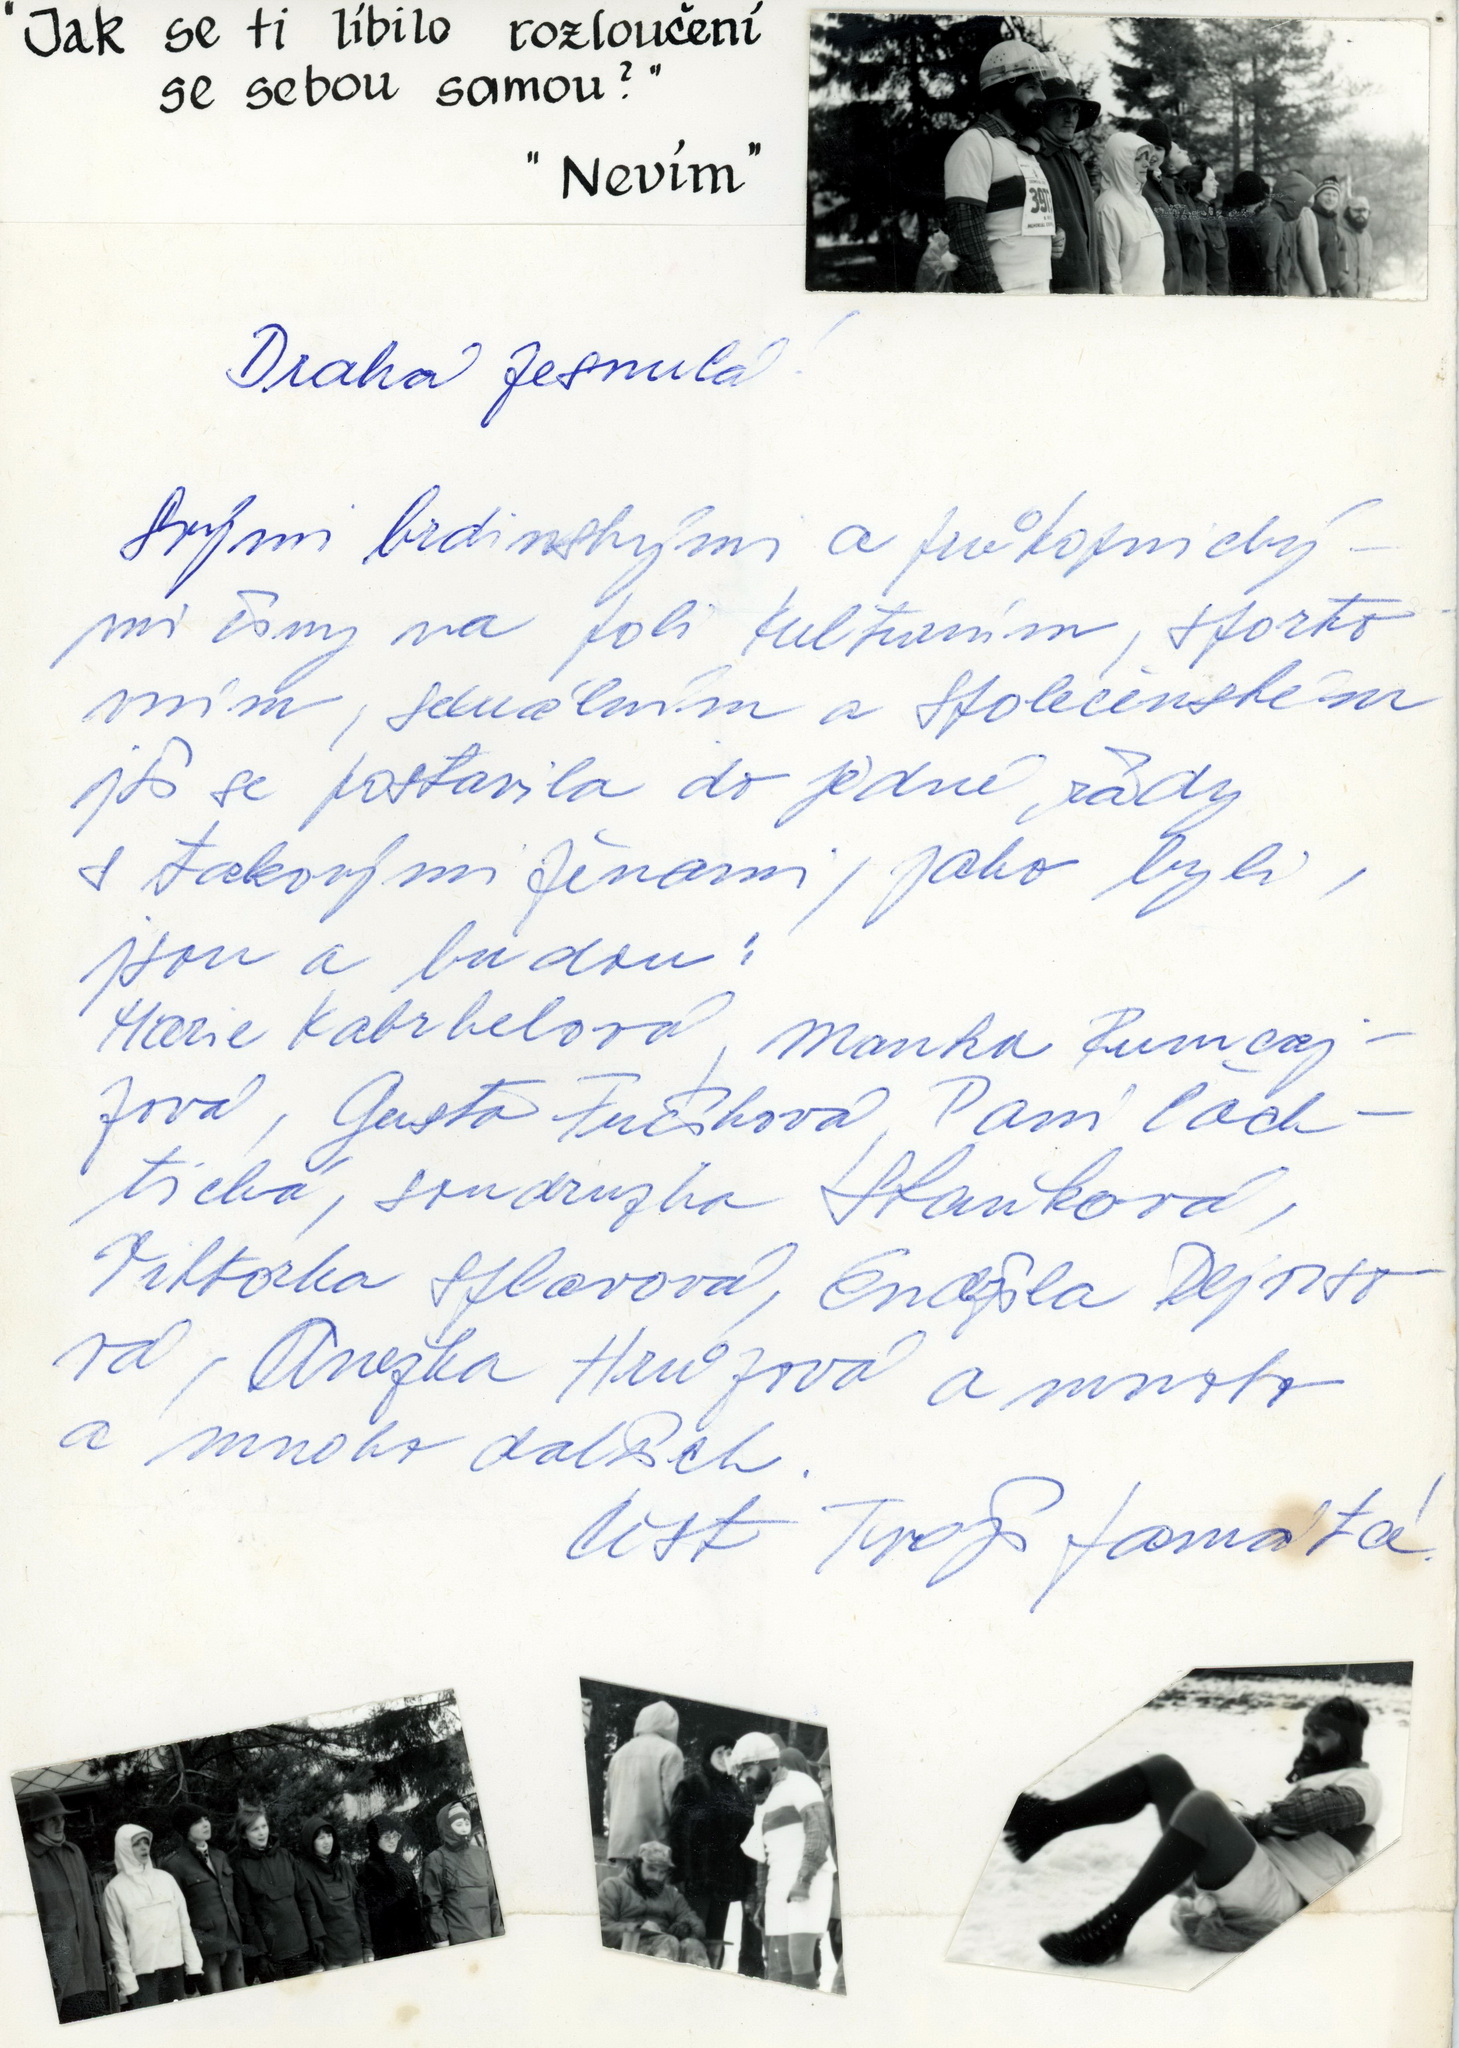 "Jak se ti líbilo rozloučení
se sebou samou?"
"Nevím"
397
Drahá zesnulá!
Svými hrdinskými a průkopnický-
mi činy na poli kulturním, sporto
vním, sexuálním a společenském
jsi se postavila do jedné řady
s takovými ženami, jako byli,
jsou a budou:
Marie Kabrhelová, Manka Rumcaj-
zová, Gusta Fučíková, Paní Čach-
tická, soudružka Slanková,
Viktorka Splavová, Endžila Dejviso
vá, Anežka Hrůzová a mnoho
a mnoho dalších.
Čest Tvojí památce!